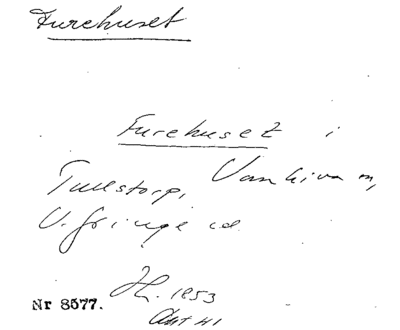 Furehuset
Furehuset i
Tullstorp, Vankiva sn,
V. Göinge hd
Nr 8577. JL. 1853
Akt 41